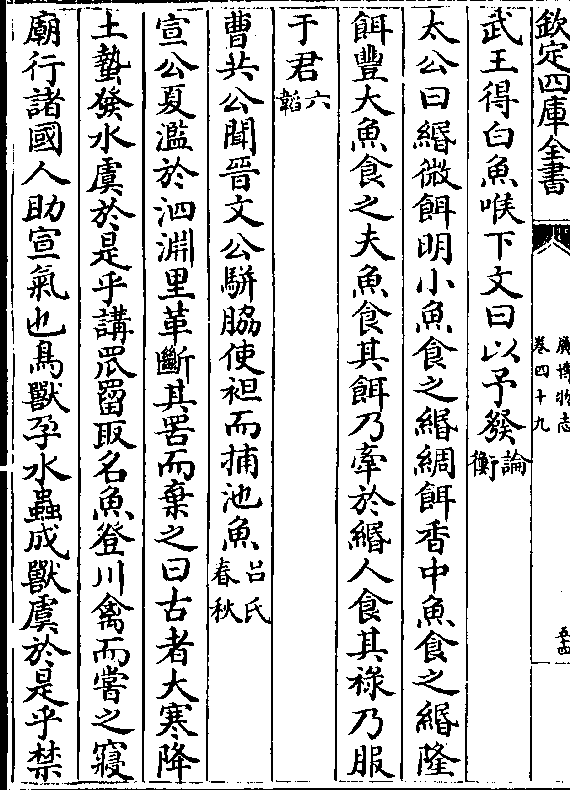 欽定四庫全書
廣博物志
卷四十九
五十四
武王得白魚喉下文曰以予發論衡
太公曰緡微餌明小魚食之緡綢餌香中魚食之緡隆
餌豐大魚食之夫魚食其餌乃牽於緡人食其祿乃服
于君六韜
曹共公聞晉文公駢脇使袒而捕池魚呂氏春秋
宣公夏濫於泗淵里革斷其罟而棄之曰古者大寒降
土蟄發水虞於是乎講罛罶取名魚登川禽而嘗之寢
廟行諸國人助宣氣也鳥獸孕水蟲成獸虞於是乎禁